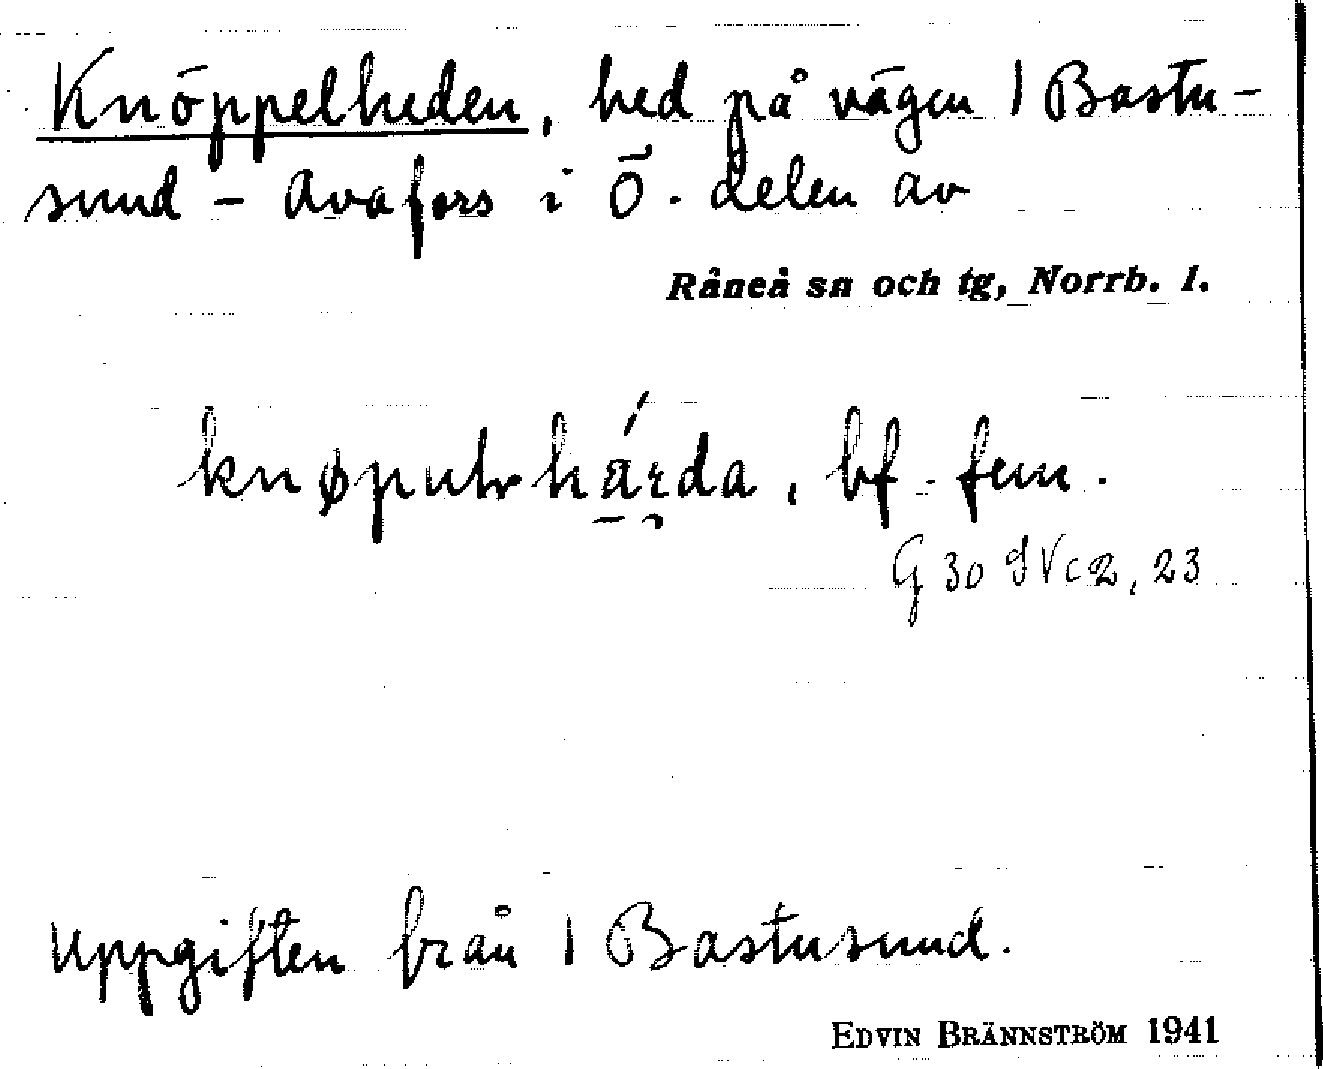 Knöppelheden, hed på vägen | Bastu-
sund - Avafors i Ö. delen av
Råneå sn och tg, Norrb. l.
bf. fem.
G 30 IV c 2, 23
Uppgiften från | Bastusund.
EDVIN BRÄNNSTRÖM 1941